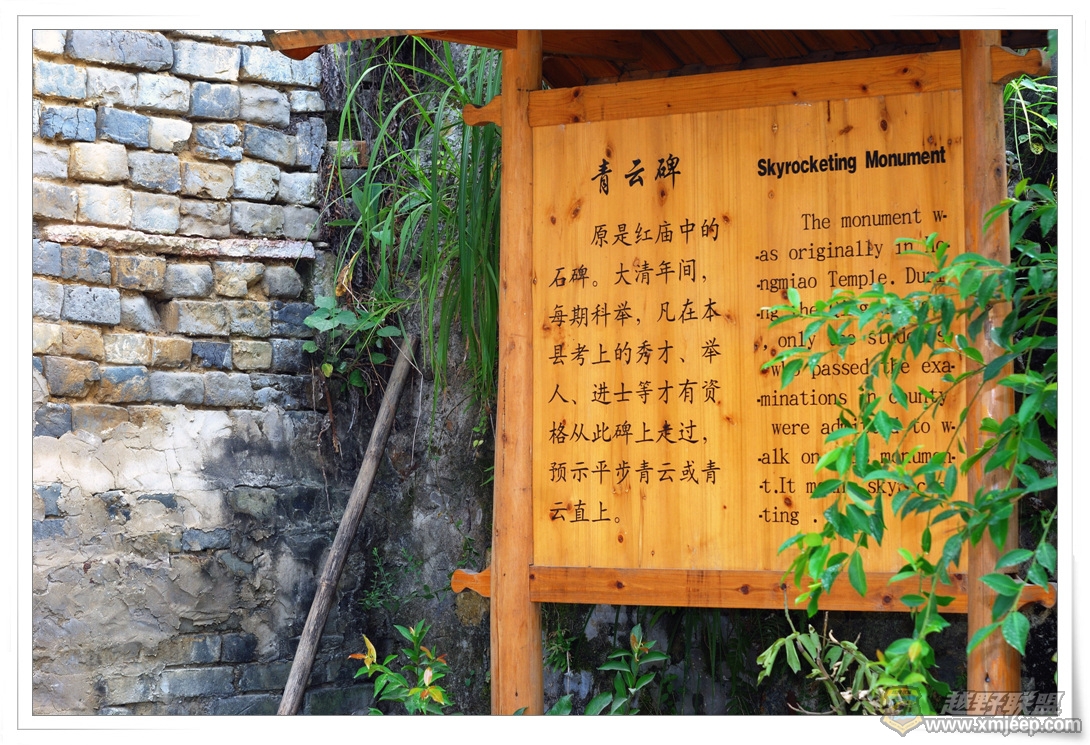 青云碑
原是红庙中的
石碑。大清年间，
每期科举，凡在本
县考上的秀才、举
人、进士等才有资
格从此碑上走过，
预示平步青云或青
云直上。
Skyrocketing Monument
The monument w-
-as originally in
-ngmiao Temple.
-ng the
, only
who passed the exa-
-minations in county
were to w-
-alk on monumen-
-t.It
-ting .
越野联盟
www.xmjeep.com